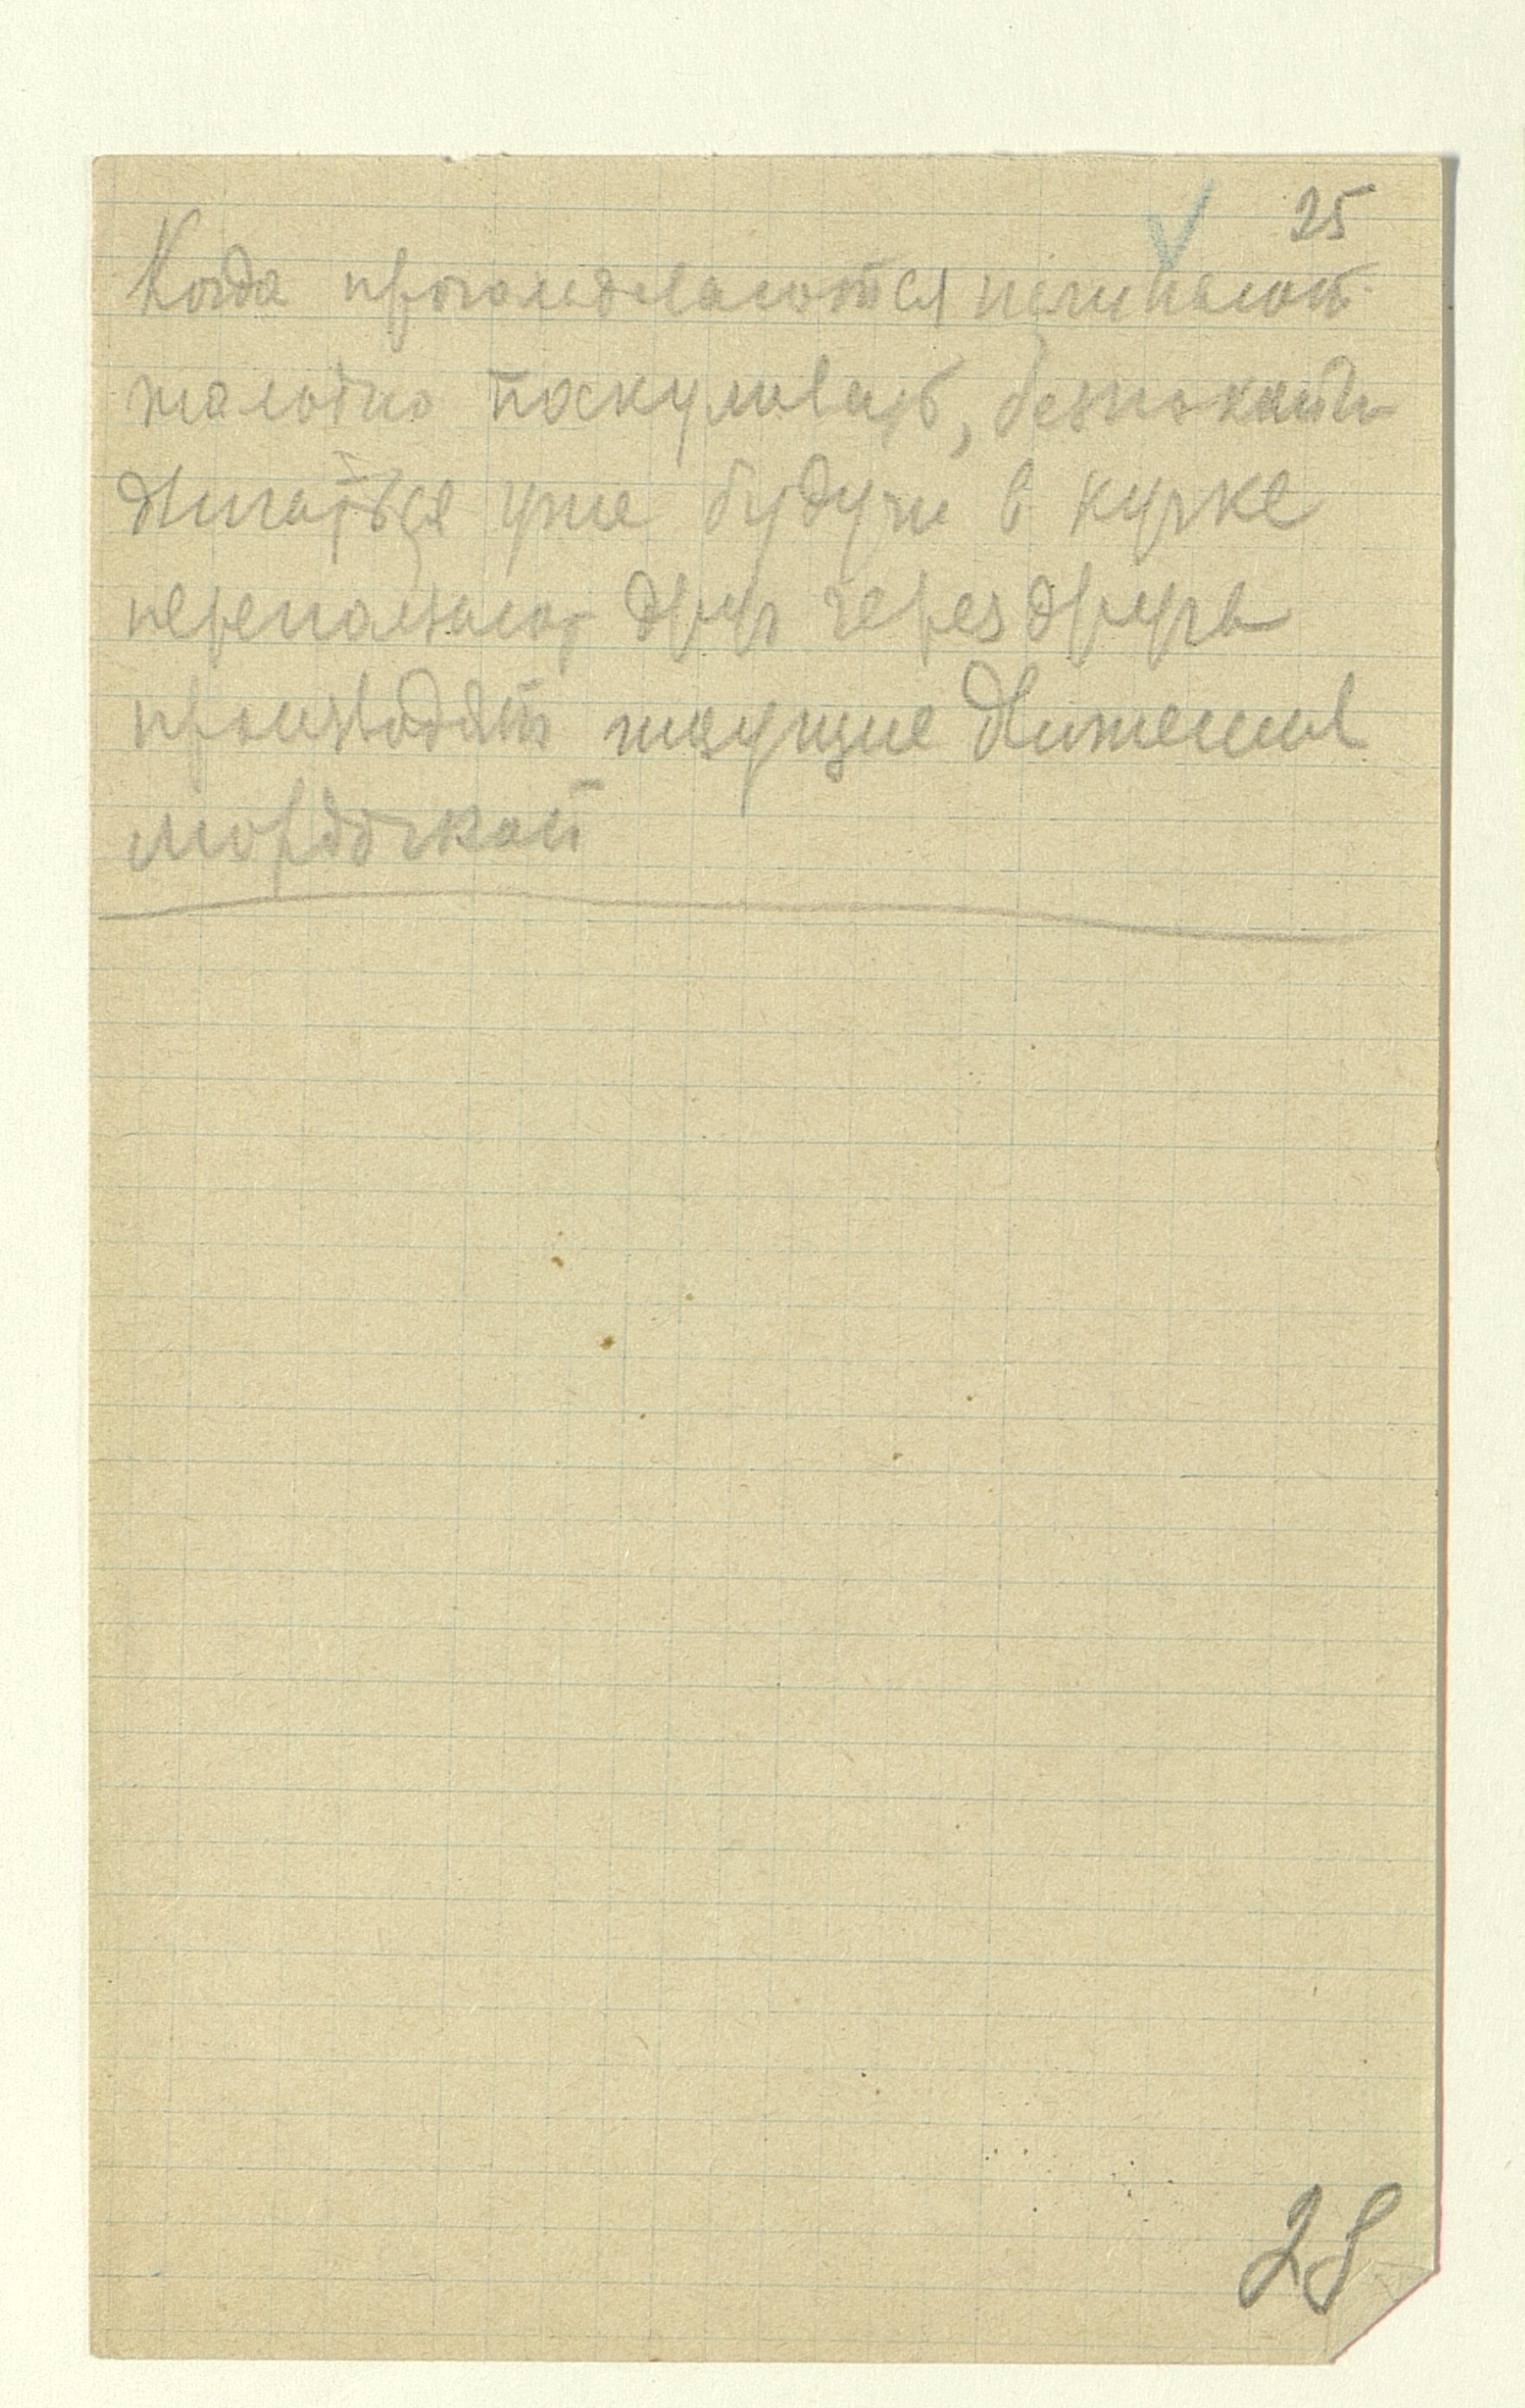 25
Когда проголодаются начинают
жалобно поскуливать, беспокойно
двигаться уже будучи в кучке
переползают друг через друга
производят ищущие движения
мордочкой
28